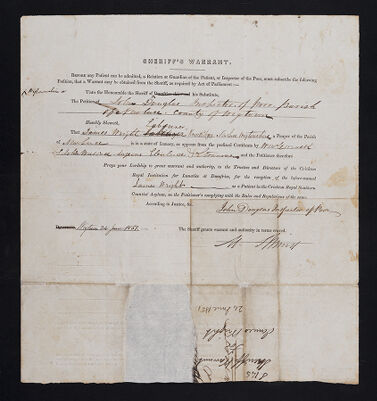 SHERIFF'S WARRANT.
BEFORE any Patient can be admitted, a Relative or Guardian of the Patient, or Inspector of the Poor, must subscribe the following
Petition, that a Warrant may be obtained from the Sheriff, as required by Act of Parliament:—
Unto the Honourable the Sheriff of his Substitute,
The Petition of John Douglas Inspector of Poor Parish
of New Luce County of Wigtown
Humbly Sheweth,
Labourer
That James Wright a Pauper of the Parish
of New Luce is in a state of Lunacy, as appears from the prefixed Certificate by
and the Petitioner therefore
Prays your Lordship to grant warrant and authority, to the Trustees and Directors of the Crichton
Royal Institution for Lunatics at Dumfries, for the reception of the before-named
James Wright as a Patient in the Crichton Royal Southern
Counties' Asylum, on the Petitioner's complying with the Rules and Regulations of the same.
According to Justice, &c. John Douglas Inspector of Poor
Wigtown 24 June 1851. The Sheriff grants warrant and authority in terms craved.
Sheriff Warrant
James Wright
24 June 1851